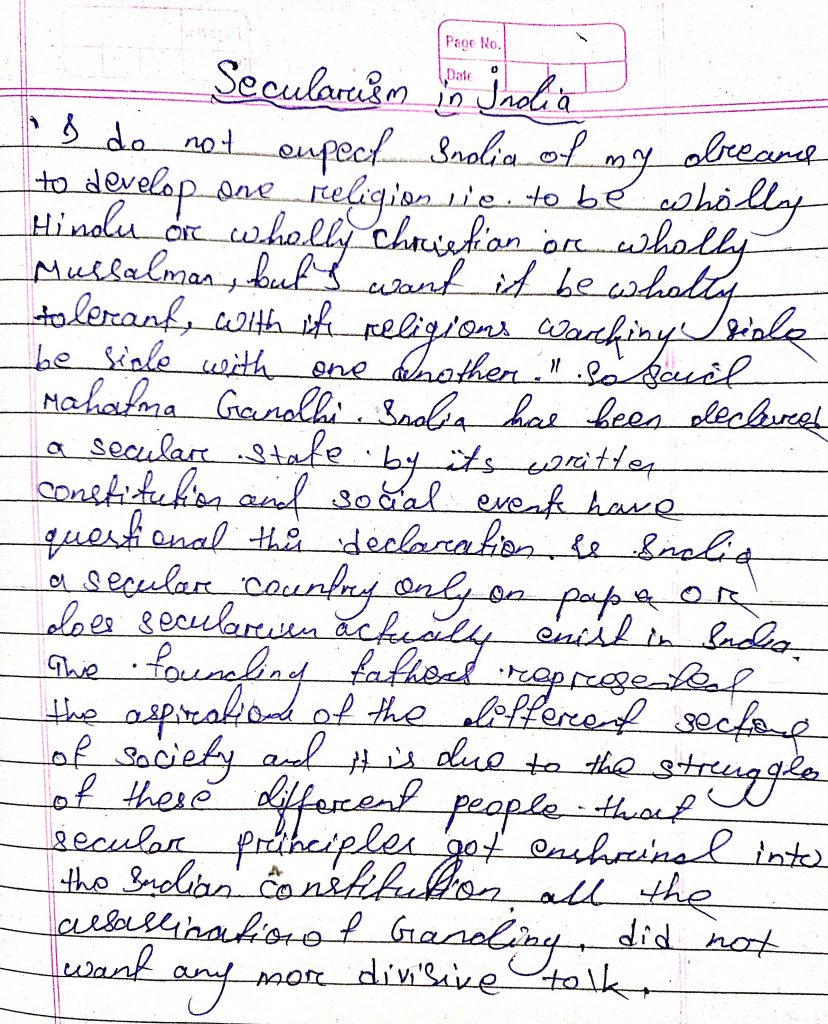 Page No.
Date
Secularism in India
" I do not expect India of my dreams
to develop one religion, i.e. to be wholly
Hindu or wholly Christian or wholly
Mussalman, but I want it be wholly
tolerant, with its religions working side
be side with one another." So said
Mahatma Gandhi. India has been declared
a secular state by its written
constitution and social events have
questional this declaration. Is India
a secular country only on pap a or
does secularism actually exist in India.
The founding fathers represented
the aspirations of the different sections
of society and it is due to the struggles
of these different people that
secular principles got enshrined into
the Indian Constitution all the
assassination of Gandhiy, did not
want any more divisive talk.